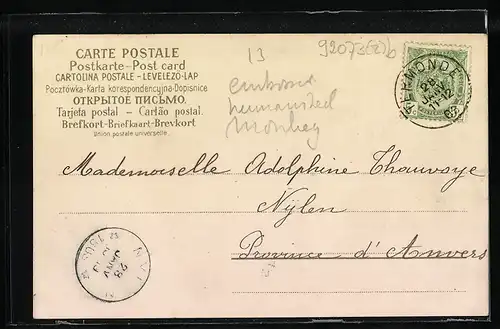 CARTE POSTALE
Postkarte-Post card
CARTOLINA POSTALE - LEVELEZŐ-LAP
Pocztówka-Karta korespondencyjna-Dopisnice
ОТКРЫТОЕ ПИСЬМО.
Tarjeta postal - Cartão postal.
Brefkort-Briefkaart-Brevkort
Union postale universelle.
13
92073(2)b
embossed
humanised
monkey
TERMONDE
28
JANV
Mademoiselle Adolphine Thauvoye
Nijlen
Province d'Anvers
28
JANV
1905